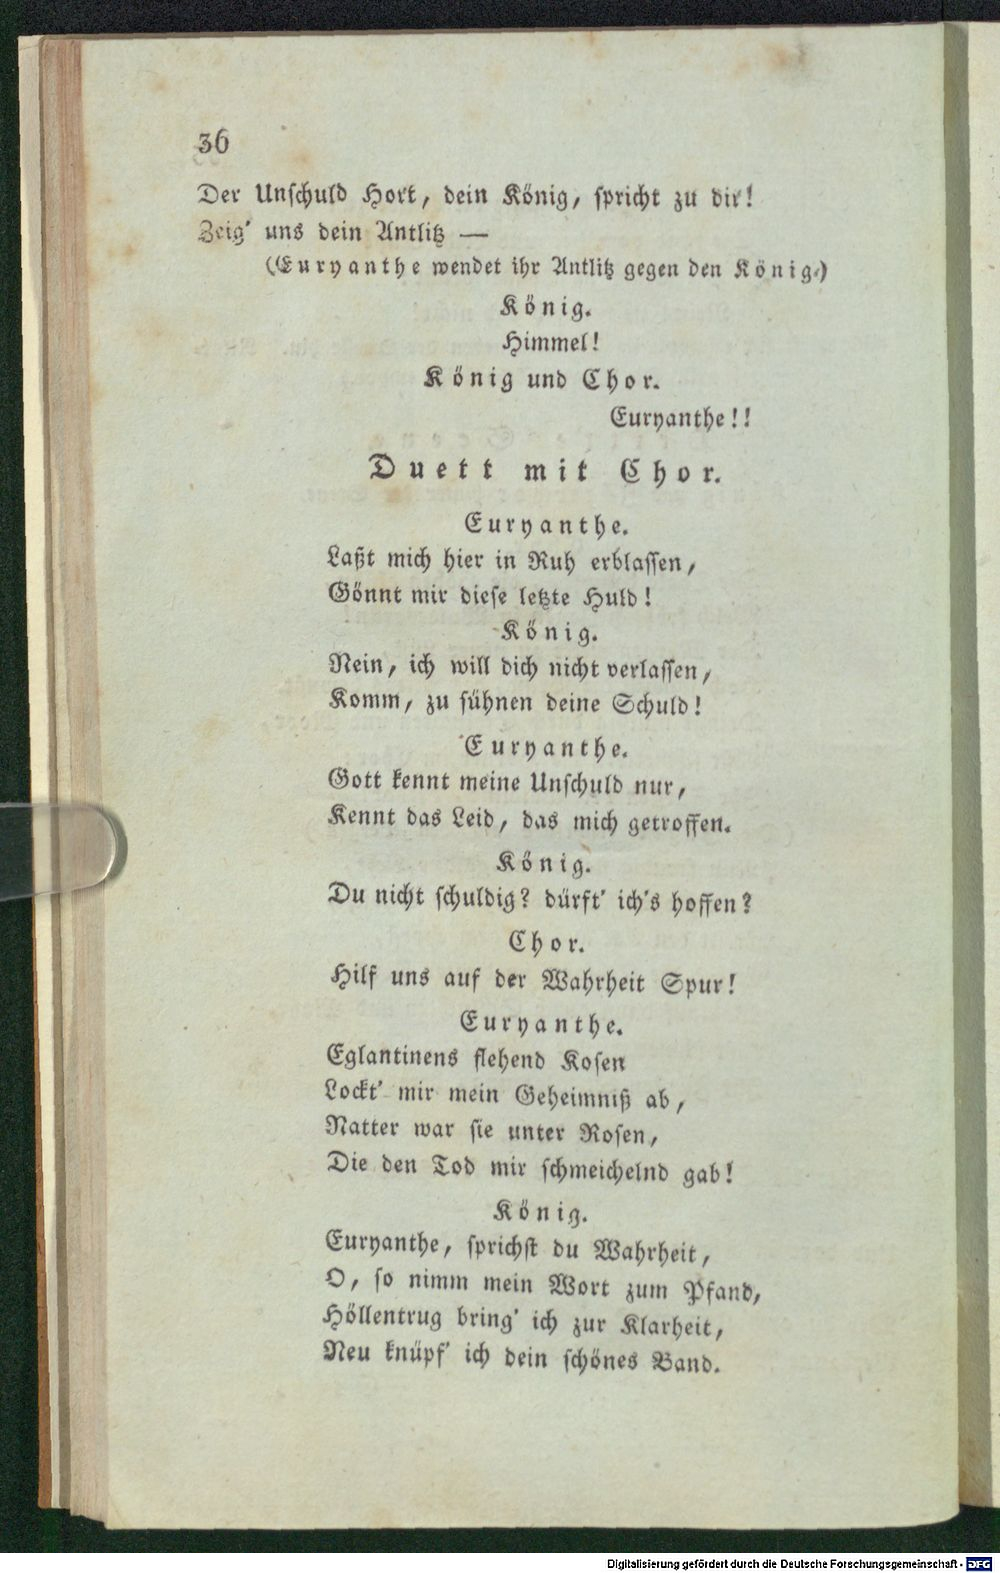 36
Der Unschuld Hort, dein König, spricht zu dir!
Zeig' uns dein Antlitz —
(Euryanthe wendet ihr Antlitz gegen den König.)
König.
Himmel!
König und Chor.
Euryanthe!!
Duett mit Chor.
Euryanthe.
Laßt mich hier in Ruh erblassen,
Gönnt mir diese letzte Huld!
König.
Nein, ich will dich nicht verlassen,
Komm, zu sühnen deine Schuld!
Euryanthe.
Gott kennt meine Unschuld nur,
Kennt das Leid, das mich getroffen.
König.
Du nicht schuldig? dürft' ich's hoffen?
Chor.
Hilf uns auf der Wahrheit Spur!
Euryanthe.
Eglantinens flehend Kosen
Lockt' mir mein Geheimniß ab,
Natter war sie unter Rosen,
Die den Tod mir schmeichelnd gab!
König.
Euryanthe, sprichst du Wahrheit,
O, so nimm mein Wort zum Pfand,
Höllentrug bring' ich zur Klarheit,
Neu knüpf' ich dein schönes Band.
Digitalisierung gefördert durch die Deutsche Forschungsgemeinschaft - DFG